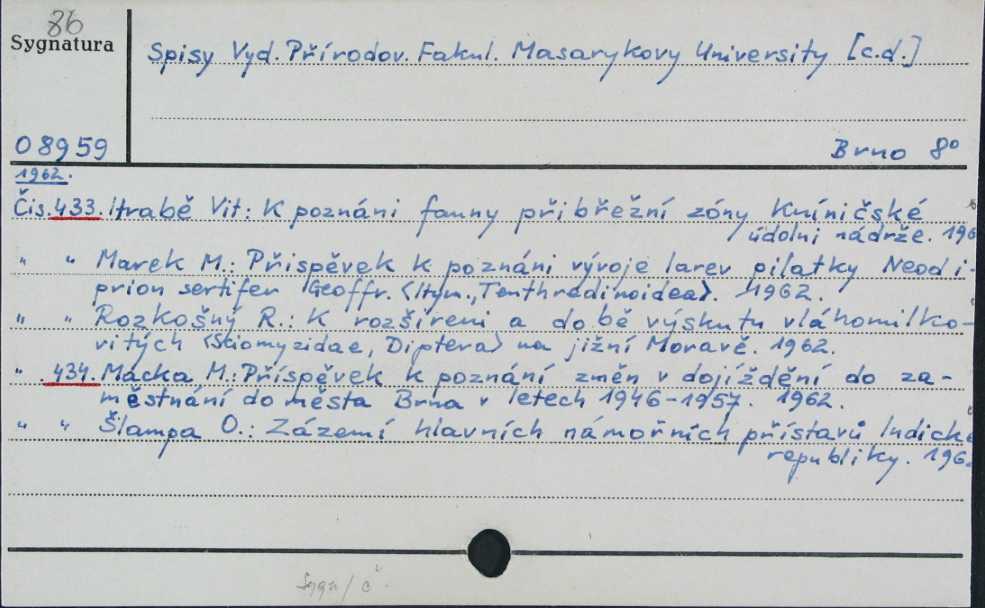 86
Sygnatura
Spisy Vyd. Přírodov. Fakul. Masarykovy University [c.d.]
08959
Brno 8º
1962.
Čis. 433. Hrabě Vit: K poznáni fauny při břežní zóny Kníničské
údolni nádrže. 196
" " Marek M.: Přispěvek k poznáni vývoje larev pilatky Neodi-
prion sertifer Geoffr. (Hym., Tenthredinoidea). 1962.
" " Rozkošný R.: K rozšíreni a době výskutu vláhomilko-
vitých (Sciomyzidae, Diptera) na jižní Moravě. 1962.
" 434. Macka M.: Příspěvek k poznání změn v dojíždění do za-
městnání do města Brna v letech 1946-1957. 1962.
" " Šlampa O.: Zázemí hlavních námořních přístavů Indické
republiky. 196
Sygn/c